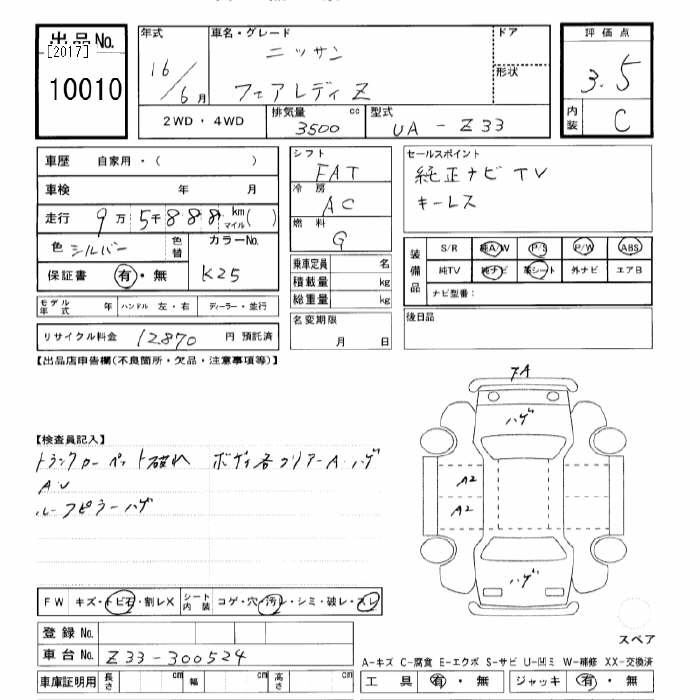 出品No.
[2017]
10010
年式
16/6月
車名・グレード
ニッサン
フェアレディZ
ドア
形状
評価点
3.5
内装
C
2WD・4WD
排気量 cc
3500
型式
UA-Z33
車歴 自家用・( )
車検 年 月
走行 9万5千888 km マイル( )
色 シルバー
色替
カラーNo.
K25
保証書 有・無
モデル年式 年 ハンドル 左・右 ディーラー・並行
リサイクル料金 12,870 円 預託済
シフト
FAT
冷房
AC
燃料
G
乗車定員 名
積載量 kg
総重量 kg
名変期限
月 日
セールスポイント
純正ナビ TV
キーレス
装備品
S/R 純A/W P/S P/W ABS
純TV 純ナビ 革シート 外ナビ エアB
ナビ型番:
後日品
【出品店申告欄(不良箇所・欠品・注意事項等)】
【検査員記入】
トランクカーペット破れ ボディ各クリアーA・ハゲ
A・U
ルーフピラーハゲ
FA
ハゲ
A2
A2
ハゲ
FW キズ・トビ石・割レX
シート内装 コゲ・穴・汚レ・シミ・破レ・スレ
登録No.
車台No. Z33-300524
車庫証明用 長さ cm 幅 cm 高さ cm
スペア
A-キズ C-腐食 E-エクボ S-サビ U-凹ミ W-補修 XX-交換済
工具 有・無 ジャッキ 有・無